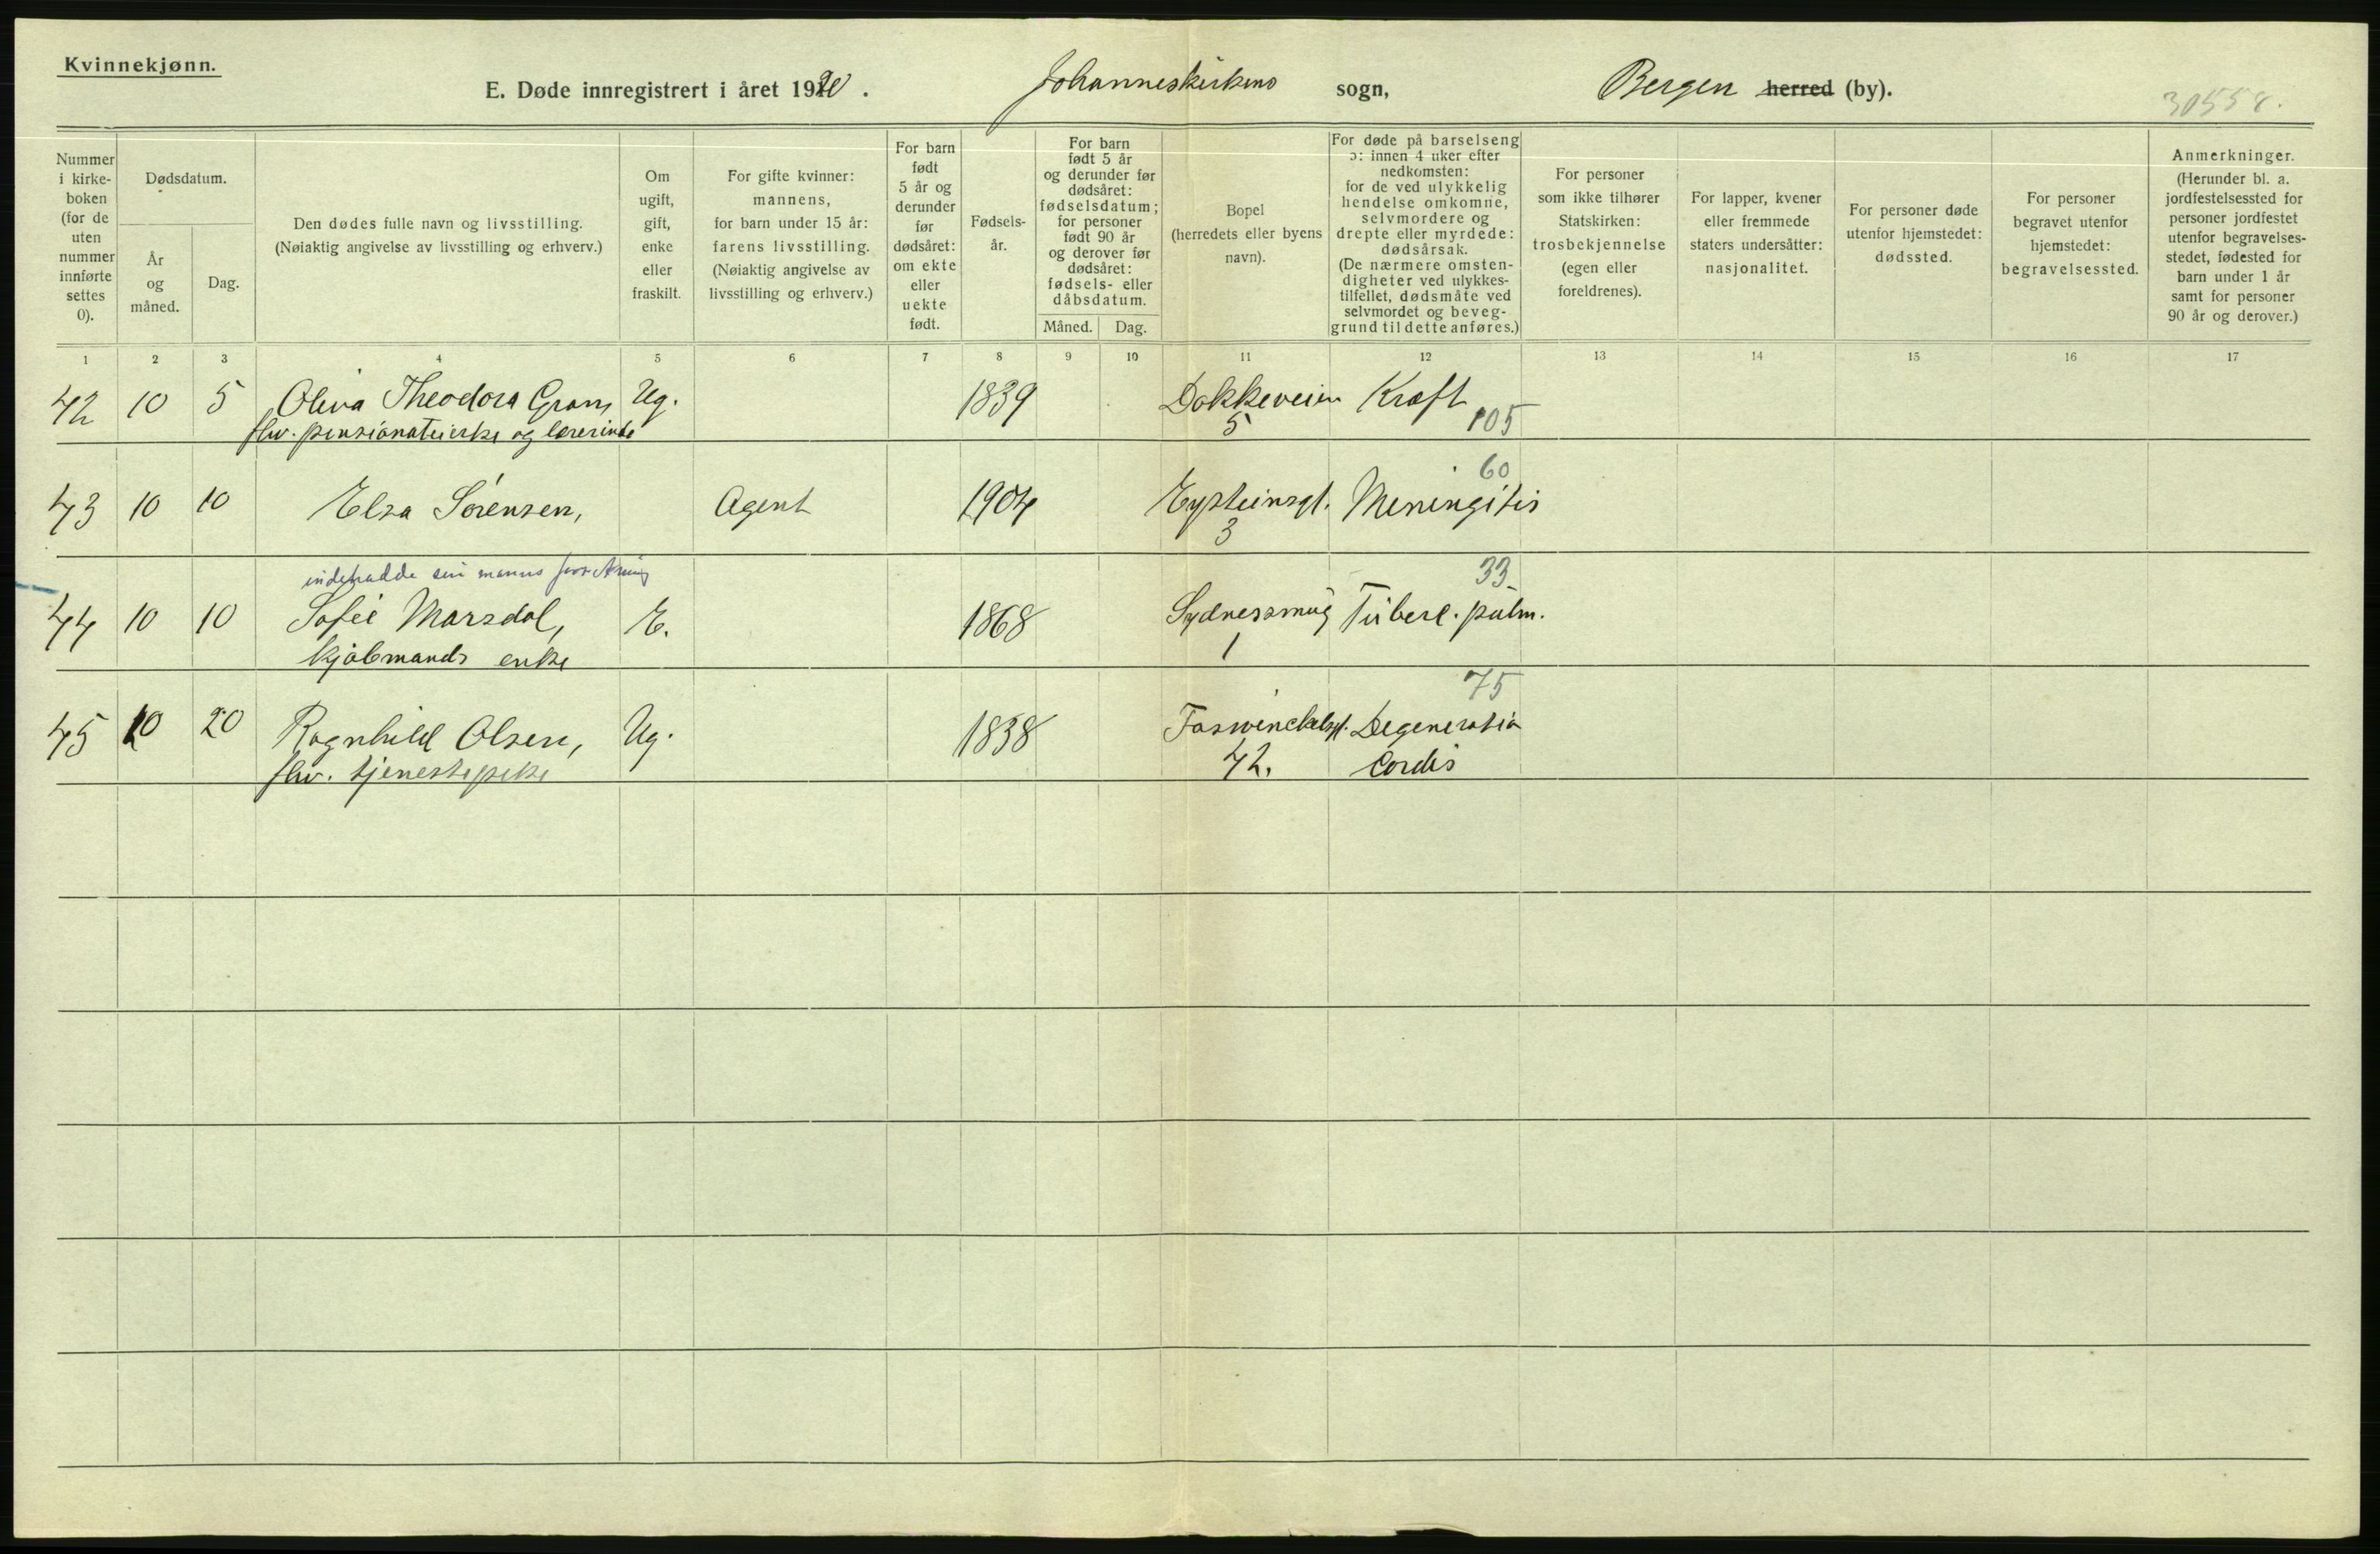 Kvinnekjønn.
E. Døde innregistrert i året 1920. Johanneskirkens sogn, Bergen herred (by). 30558.
Nummer i kirkeboken (for de uten nummer innførte settes 0).
Dødsdatum.
År og måned.
Dag.
Den dødes fulle navn og livsstilling.
(Nøiaktig angivelse av livsstilling og erhverv.)
Om ugift, gift, enke eller fraskilt.
For gifte kvinner: mannens, for barn under 15 år: farens livsstilling.
(Nøiaktig angivelse av livsstilling og erhverv.)
For barn født 5 år og derunder før dødsåret: om ekte eller uekte født.
Fødselsår.
For barn født 5 år og derunder før dødsåret: fødselsdatum; for personer født 90 år og derover før dødsåret: fødsels- eller dåbsdatum.
Måned. Dag.
Bopel (herredets eller byens navn).
For døde på barselseng ɔ: innen 4 uker efter nedkomsten: for de ved ulykkelig hendelse omkomne, selvmordere og drepte eller myrdede: dødsårsak.
(De nærmere omstendigheter ved ulykkestilfellet, dødsmåte ved selvmordet og beveggrund til dette anføres.)
For personer som ikke tilhører Statskirken: trosbekjennelse (egen eller foreldrenes).
For lapper, kvener eller fremmede staters undersåtter: nasjonalitet.
For personer døde utenfor hjemstedet: dødssted.
For personer begravet utenfor hjemstedet: begravelsessted.
Anmerkninger.
(Herunder bl. a. jordfestelsessted for personer jordfestet utenfor begravelsesstedet, fødested for barn under 1 år samt for personer 90 år og derover.)
1 2 3 4 5 6 7 8 9 10 11 12 13 14 15 16 17
42 10 5 Oliva Theodora Gran, Ug. 1839 Dokkeveien Kræft
fhv. pensionateierske og lærerinde 5 105
60
43 10 10 Elsa Sørensen, Agent 1904 Eysteinsgt. Meningitis
3
indehadde sin manns forretning 33
44 10 10 Sofie Marsdal, E. 1868 Sydnessmug Tuberc. pulm.
kjøbmands enke 1
75
45 10 20 Ragnhild Olsen, Ug. 1838 Foswinckelsgt. Degeneratio
fhv. tjenestepike 42. Cordis